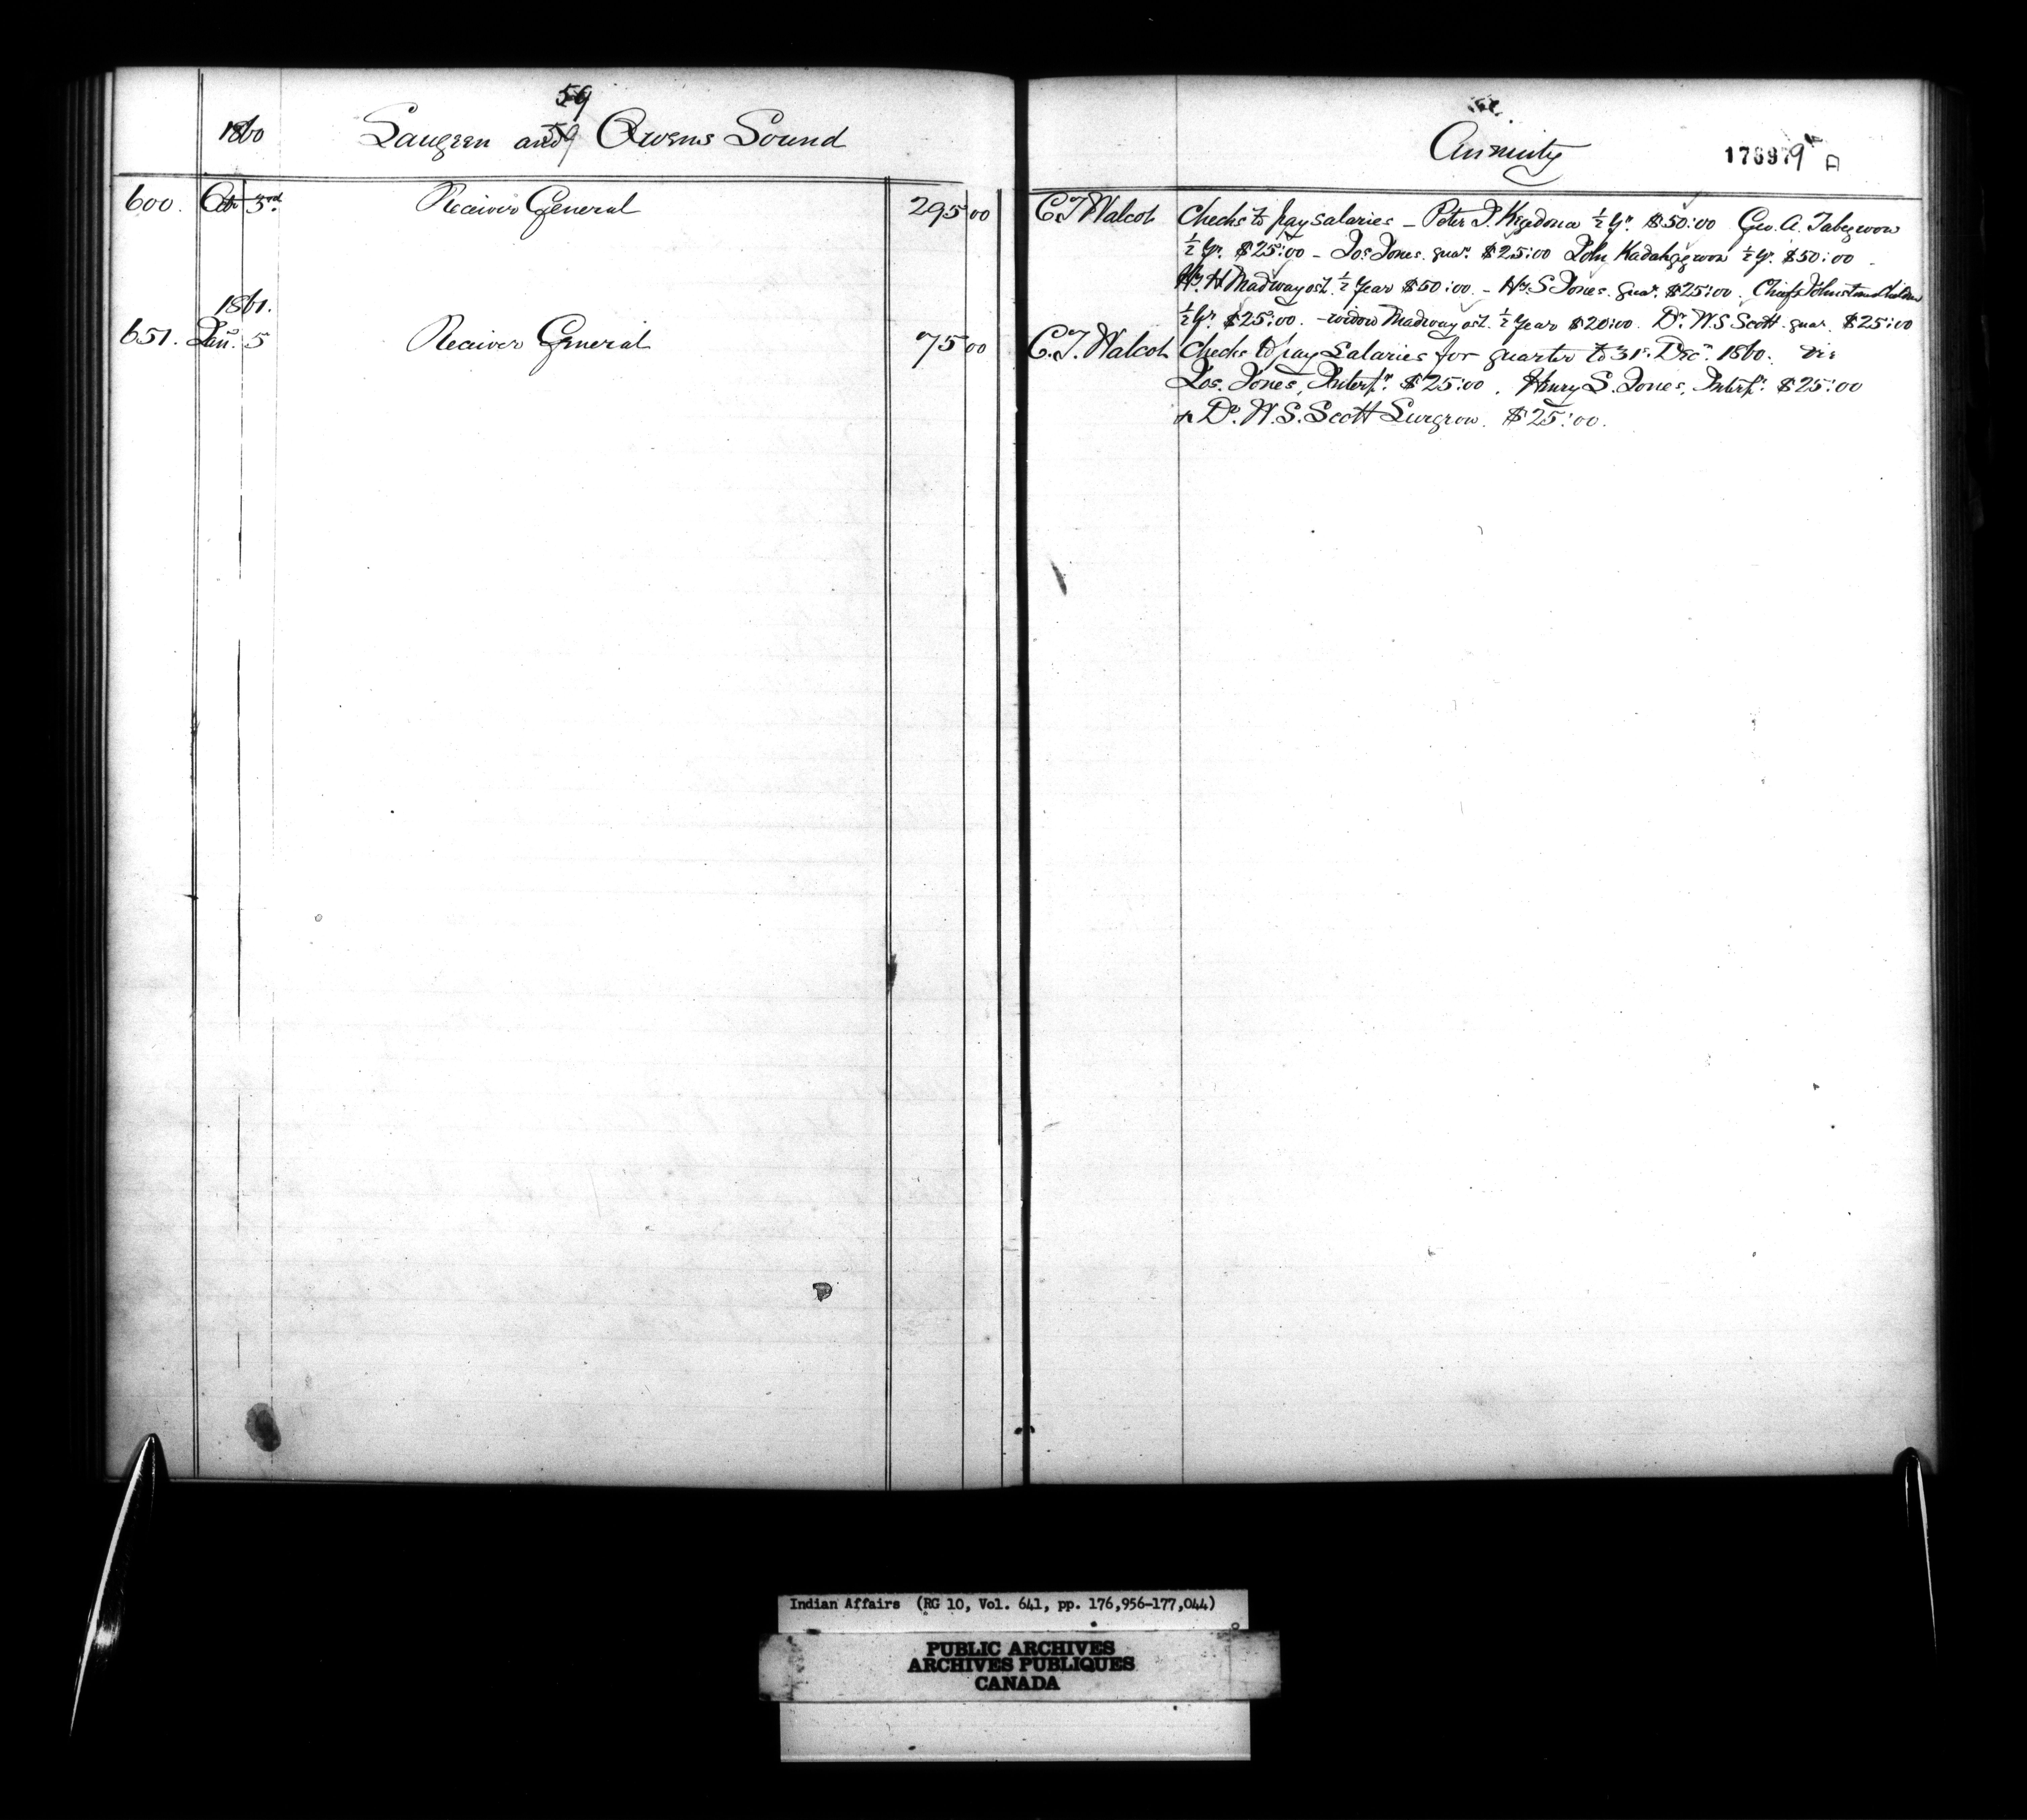 59
1860 Saugeen and Owens Sound
600. Oct 3rd Receiver General 295 00
1861.
651. Jany 5 Receiver General 75 00
Annuity
176979 A
C. T. Walcot Checks to pay salaries – Peter J. Kegedonce ½ yr. $50:00 Geo. A. Tabegwon
½ yr. $25:00 – Jos. Jones. quar. $25:00 John Kadahgegwon ½ yr. $50:00 –
Wm. H Madwayosh ½ year $50:00. – Hy. S Jones. quar. $25:00. Chief Johnston children
½ yr. $25:00. – widow Madwayosh. ½ year $20:00. Dr. W. S Scott. quar. $25:00
C. T. Walcot Checks to pay Salaries for quarter to 31st Decr. 1860. viz
Jos. Jones, Interpr. $25:00. Henry S. Jones, Interpr. $25:00
& Dr. W. S. Scott Surgeon. $25:00.
Indian Affairs (RG 10, Vol. 641, pp. 176,956-177,044)
PUBLIC ARCHIVES
ARCHIVES PUBLIQUES
CANADA